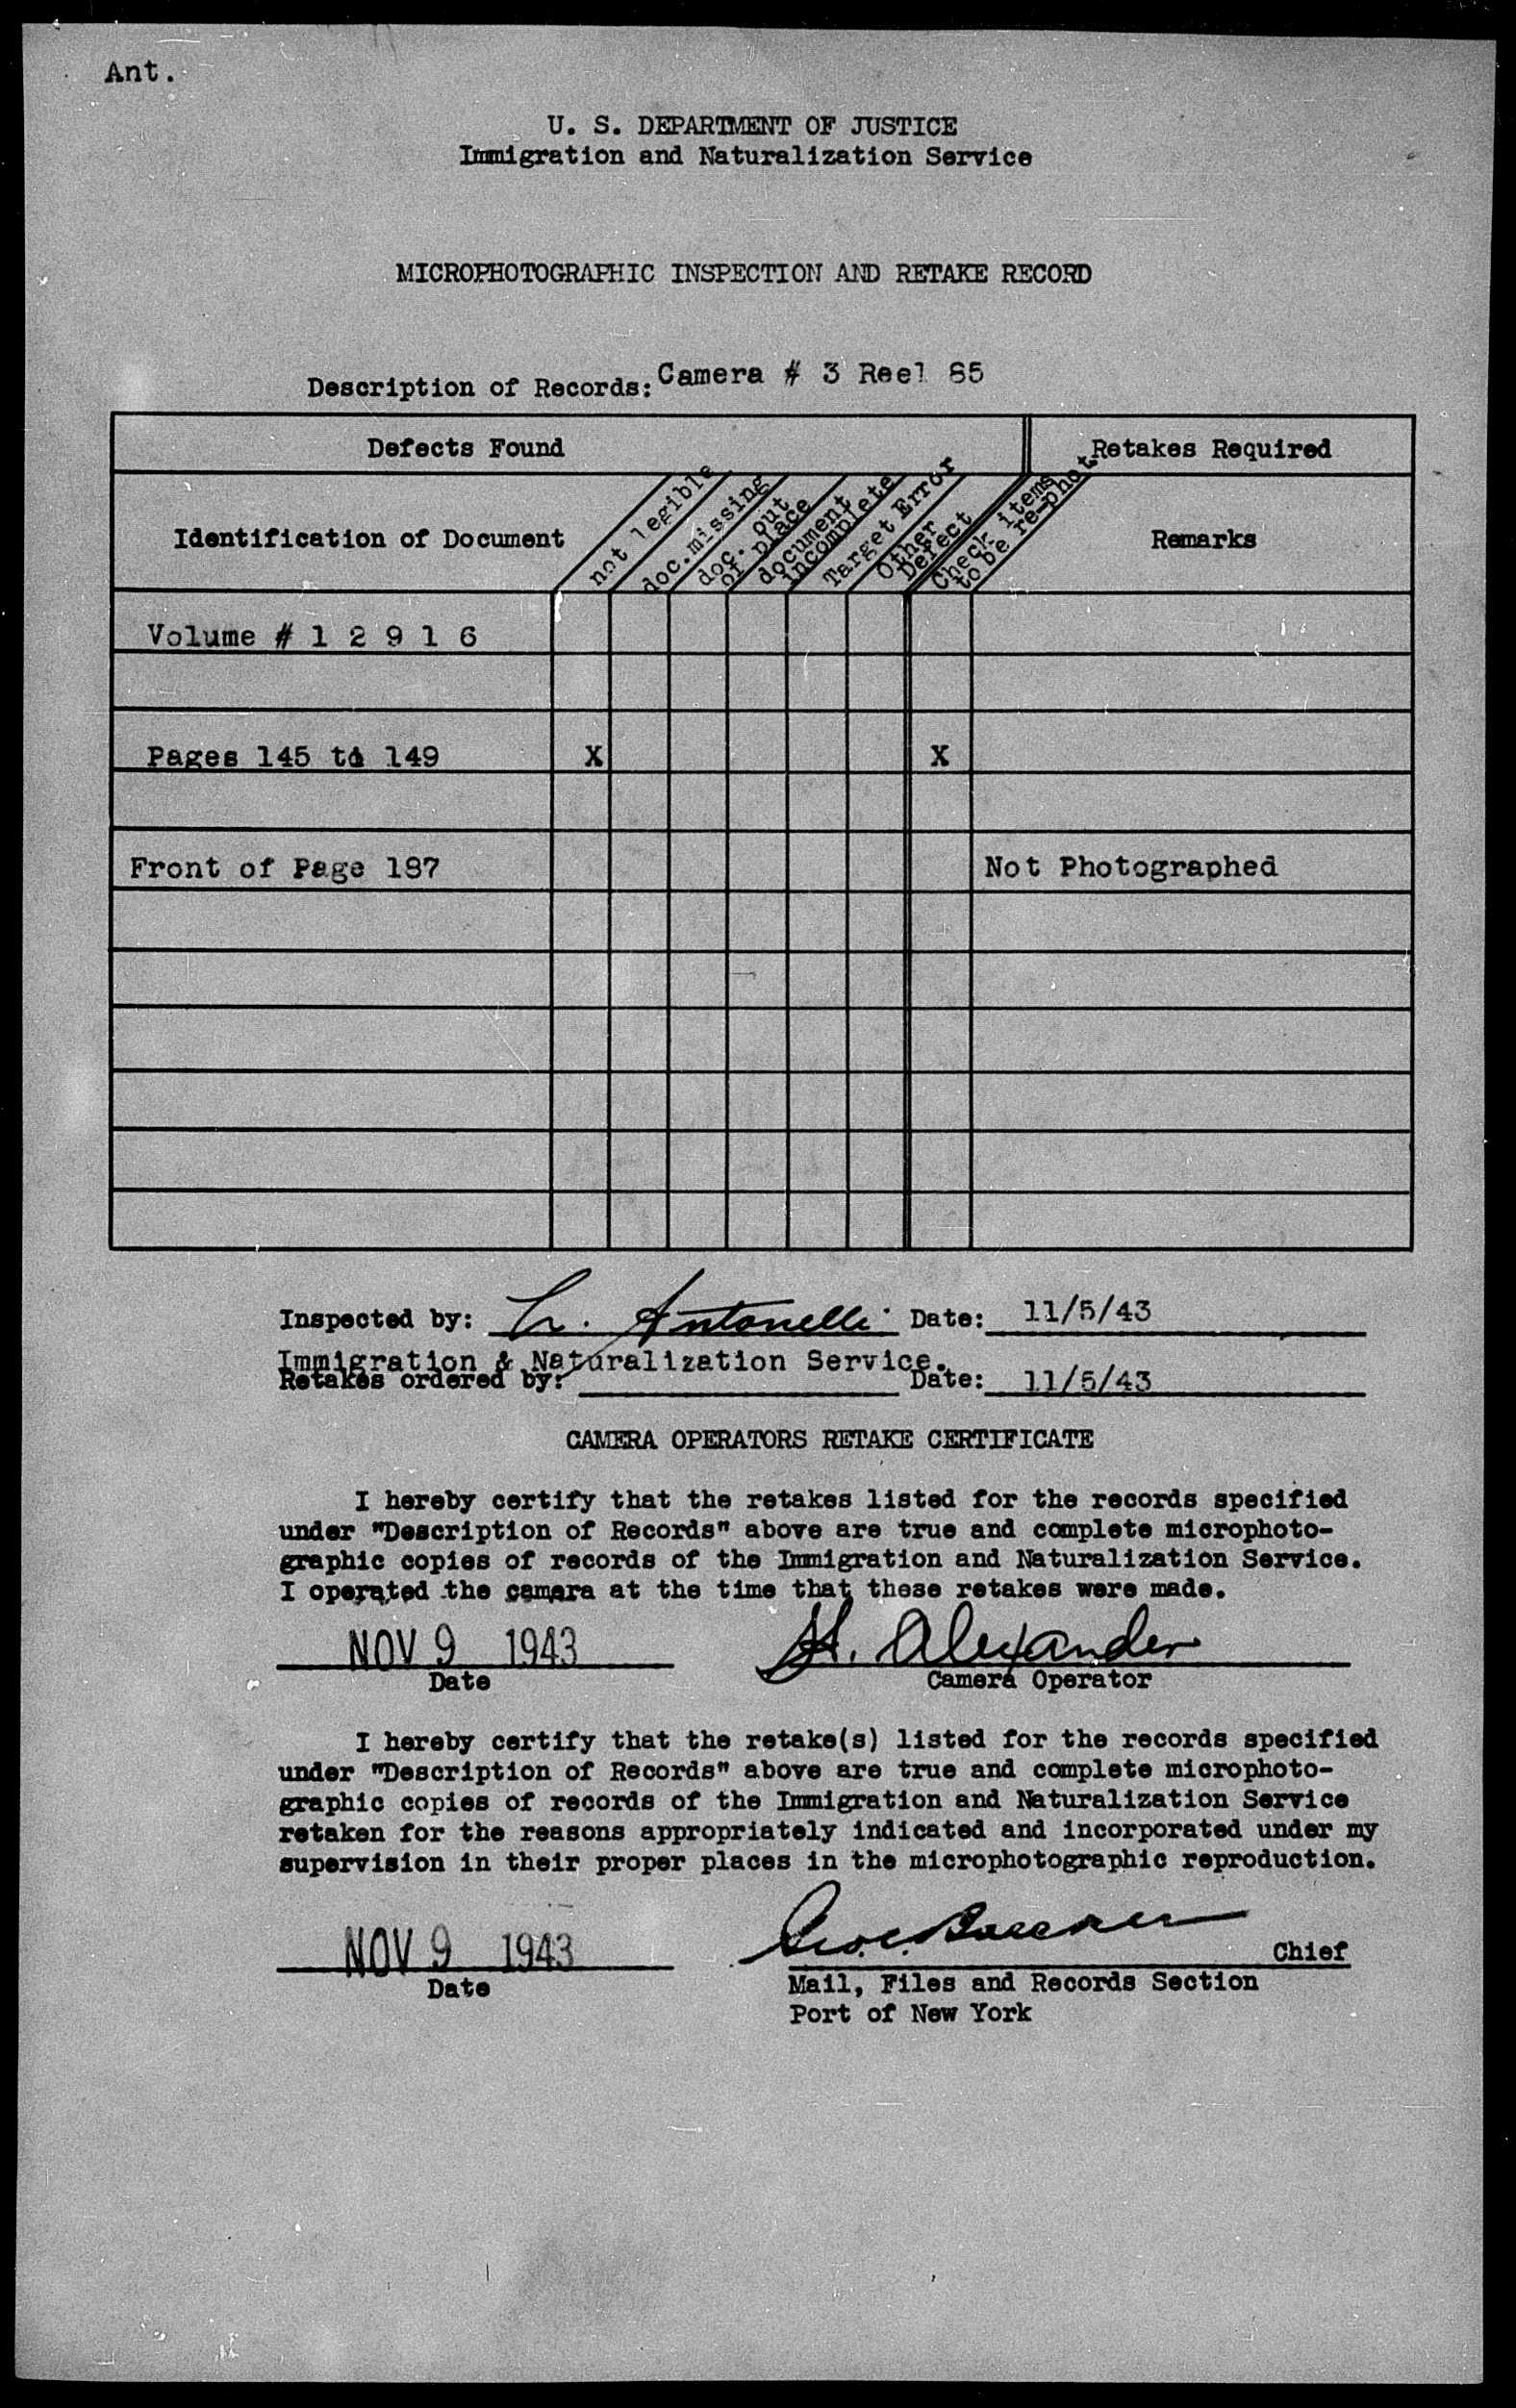 Ant.
U. S. DEPARTMENT OF JUSTICE
Immigration and Naturalization Service
MICROPHOTOGRAPHIC INSPECTION AND RETAKE RECORD
Description of Records: Camera # 3 Reel 85
Defects Found
Retakes Required
Identification of Document
not legible
doc. missing
doc. out
of place
document
incomplete
Target Error
Other
Defect
Check items
to be re-phot
Remarks
Volume # 1 2 9 1 6
Pages 145 to 149 X X
Front of Page 187 Not Photographed
Inspected by: L. Antonelli Date: 11/5/43
Immigration & Naturalization Service.
Retakes ordered by: Date: 11/5/43
CAMERA OPERATORS RETAKE CERTIFICATE
I hereby certify that the retakes listed for the records specified
under "Description of Records" above are true and complete microphoto-
graphic copies of records of the Immigration and Naturalization Service.
I operated the camera at the time that these retakes were made.
NOV 9 1943 H. Alexander
Date Camera Operator
I hereby certify that the retake(s) listed for the records specified
under "Description of Records" above are true and complete microphoto-
graphic copies of records of the Immigration and Naturalization Service
retaken for the reasons appropriately indicated and incorporated under my
supervision in their proper places in the microphotographic reproduction.
NOV 9 1943 Chief
Date Mail, Files and Records Section
Port of New York